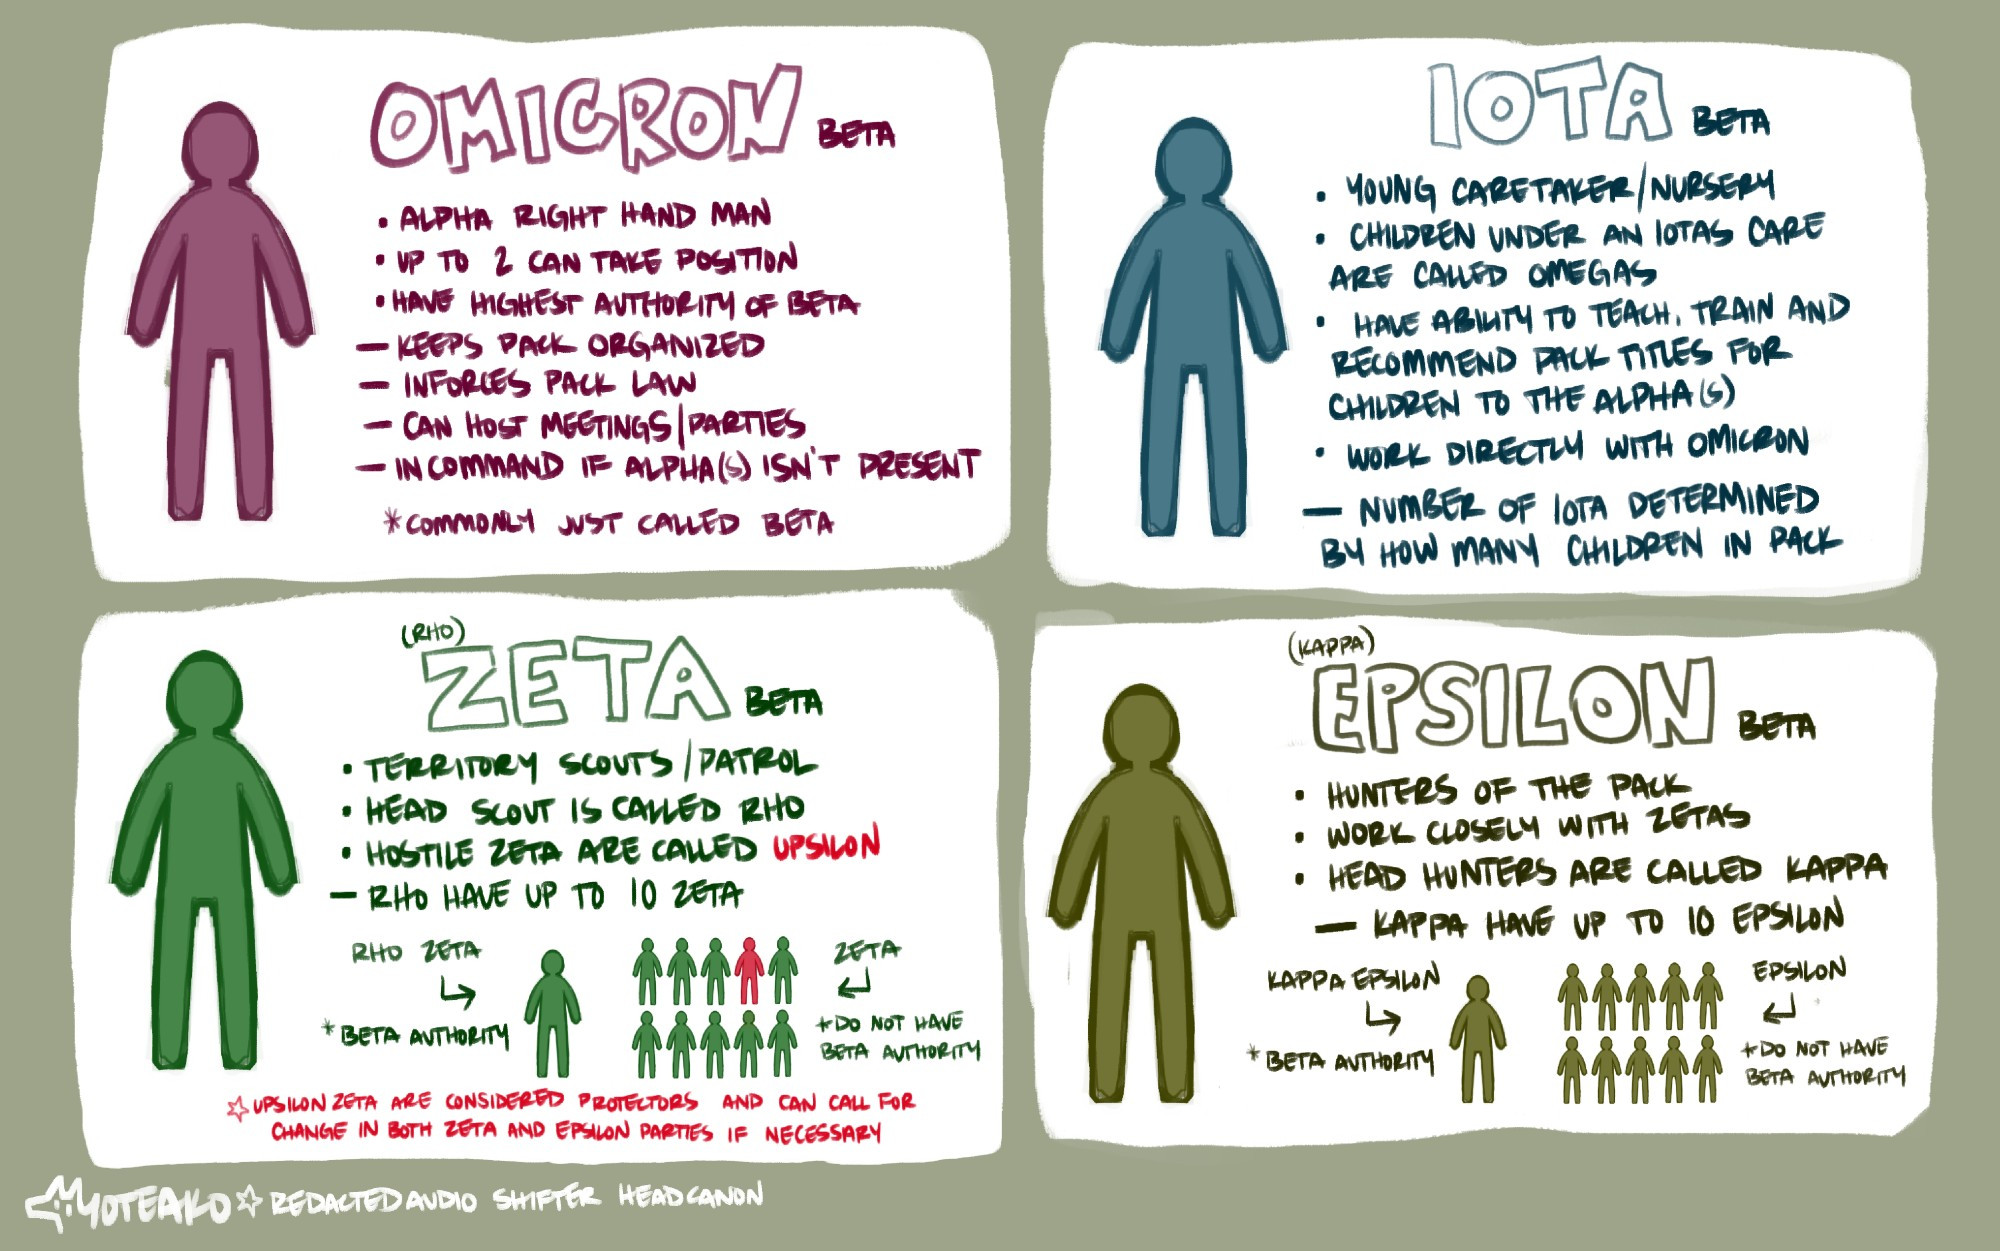 OMICRON BETA
• ALPHA RIGHT HAND MAN
• UP TO 2 CAN TAKE POSITION
• HAVE HIGHEST AUTHORITY OF BETA
— KEEPS PACK ORGANIZED
— INFORCES PACK LAW
— CAN HOST MEETINGS/PARTIES
— IN COMMAND IF ALPHA(S) ISN'T PRESENT
*COMMONLY JUST CALLED BETA
IOTA BETA
• YOUNG CARETAKER/NURSERY
• CHILDREN UNDER AN IOTAS CARE
ARE CALLED OMEGAS
• HAVE ABILITY TO TEACH, TRAIN AND
RECOMMEND PACK TITLES FOR
CHILDREN TO THE ALPHA(S)
• WORK DIRECTLY WITH OMICRON
— NUMBER OF IOTA DETERMINED
BY HOW MANY CHILDREN IN PACK
(RHO)
ZETA BETA
• TERRITORY SCOUTS/PATROL
• HEAD SCOUT IS CALLED RHO
• HOSTILE ZETA ARE CALLED UPSILON
— RHO HAVE UP TO 10 ZETA
RHO ZETA
* BETA AUTHORITY
ZETA
* DO NOT HAVE
BETA AUTHORITY
☆ UPSILON ZETA ARE CONSIDERED PROTECTORS AND CAN CALL FOR
CHANGE IN BOTH ZETA AND EPSILON PARTIES IF NECESSARY
(KAPPA)
EPSILON BETA
• HUNTERS OF THE PACK
• WORK CLOSELY WITH ZETAS
• HEAD HUNTERS ARE CALLED KAPPA
— KAPPA HAVE UP TO 10 EPSILON
KAPPA EPSILON
* BETA AUTHORITY
EPSILON
* DO NOT HAVE
BETA AUTHORITY
YOTEAKO ☆ REDACTEDAUDIO SHIFTER HEADCANON